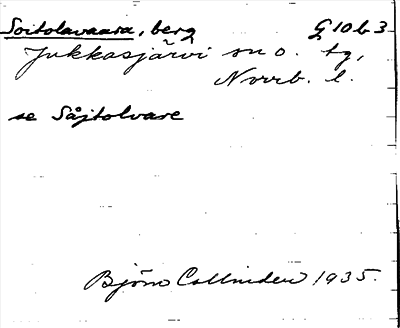 Soitolavaara, berg G 10 b 3
Jukkasjärvi sn o. tg,
Norrb. l.
se Såjtolvare
Björn Collinder 1935.